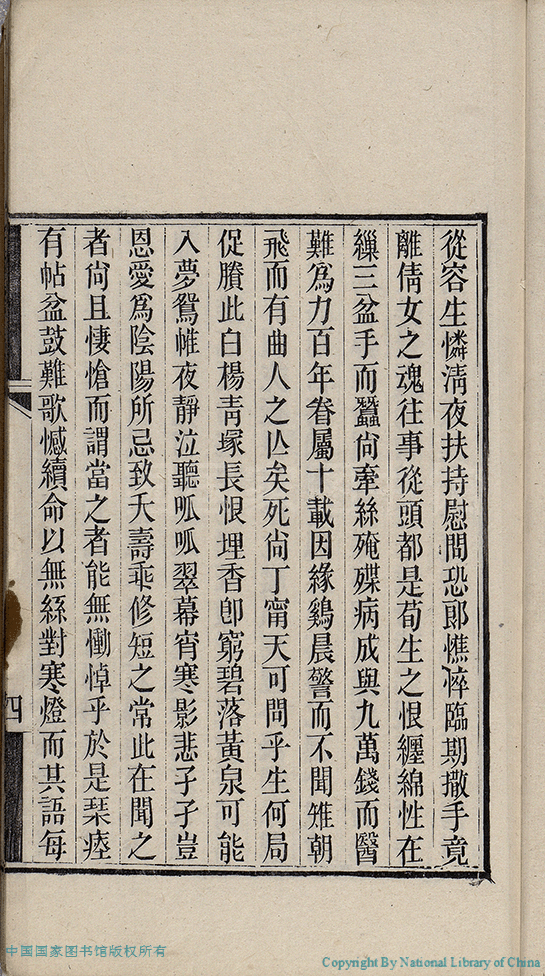 從容生憐淸夜扶持慰問恐郎憔悴臨期撒手竟
離倩女之魂往事從頭都是荀生之恨纏綿性在
繅三盆手而蠶尙牽絲殗殜病成與九萬錢而醫
難爲力百年眷屬十載因緣鷄晨警而不聞雉朝
飛而有曲人之亾矣死尙丁甯天可問乎生何局
促賸此白楊靑塚長恨埋香卽窮碧落黃泉可能
入夢鴛帷夜靜泣聽呱呱翠幕宵寒影悲孑孑豈
恩愛爲陰陽所忌致夭壽乖修短之常此在聞之
者尙且悽愴而謂當之者能無慟悼乎於是琹瘞
有帖盆鼓難歌憾續命以無絲對寒燈而其語每
四
中国国家图书馆版权所有
Copyright By National Library of China